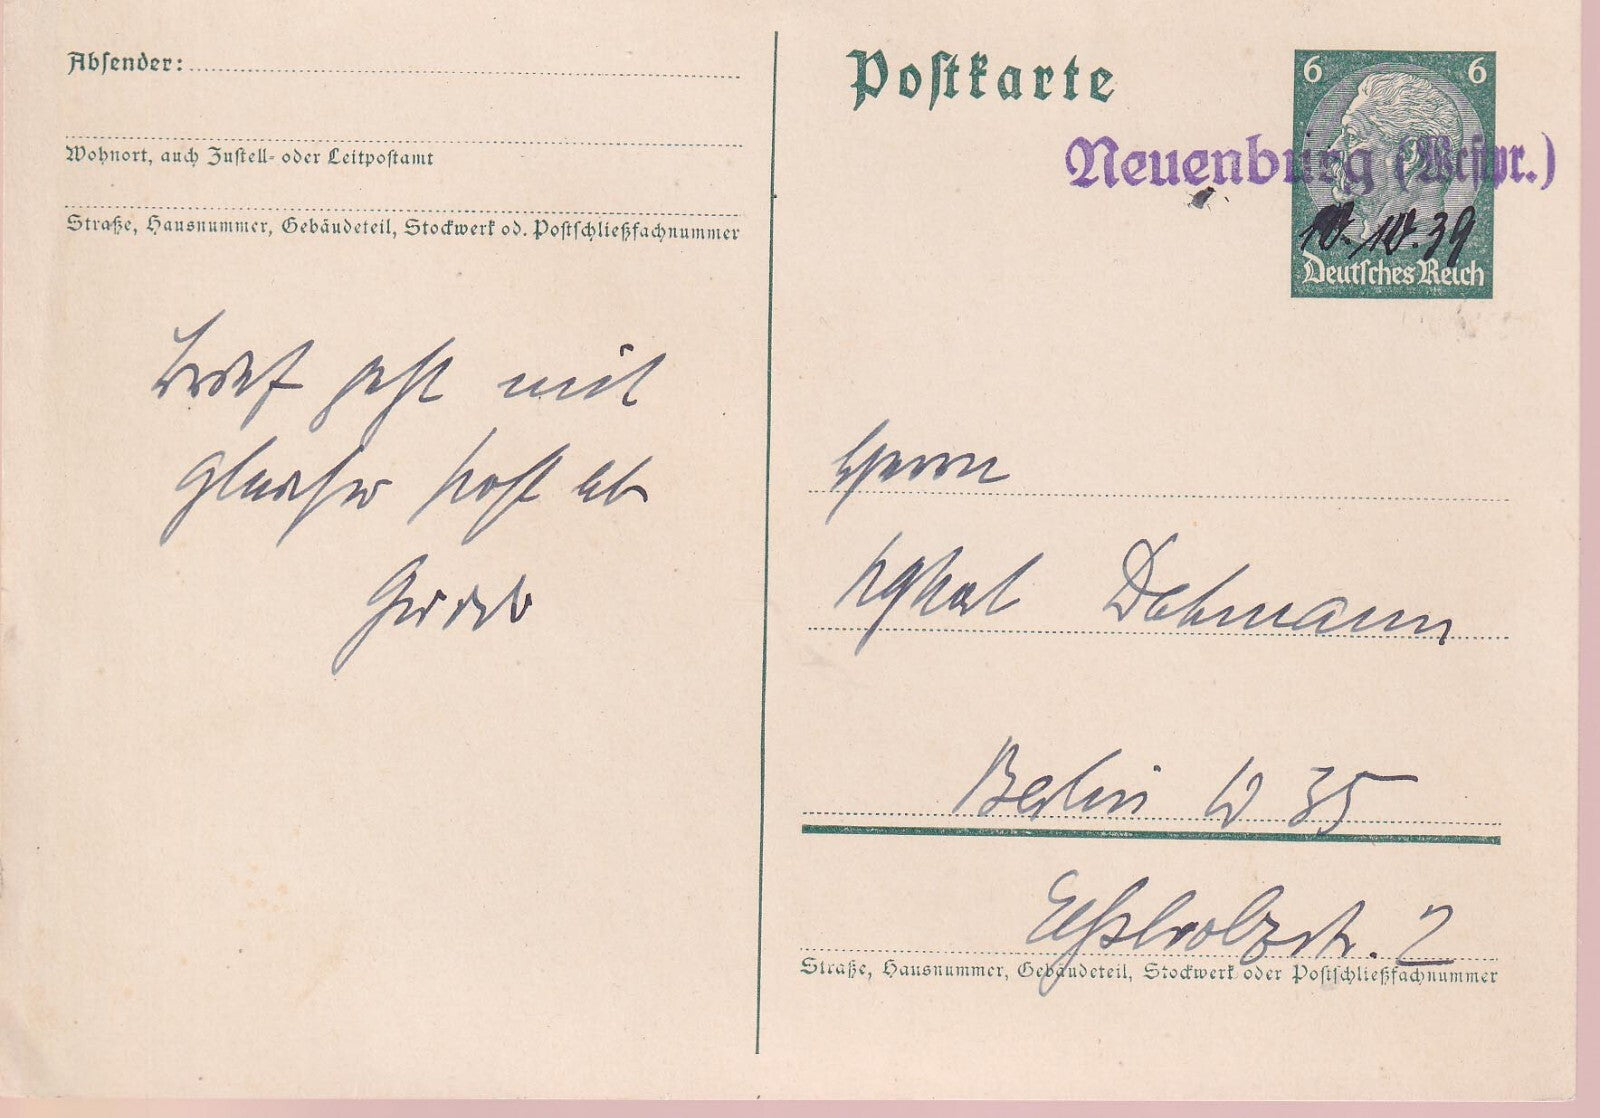 Absender:
Wohnort, auch Zustell- oder Leitpostamt
Straße, Hausnummer, Gebäudeteil, Stockwerk od. Postschließfachnummer
Brief geht mit
gleicher Post ab
Postkarte
6 6
Neuenburg (Westpr.)
10. 10. 39
Deutsches Reich
Herrn
Dahmann
Berlin W 35
2
Straße, Hausnummer, Gebäudeteil, Stockwerk oder Postschließfachnummer